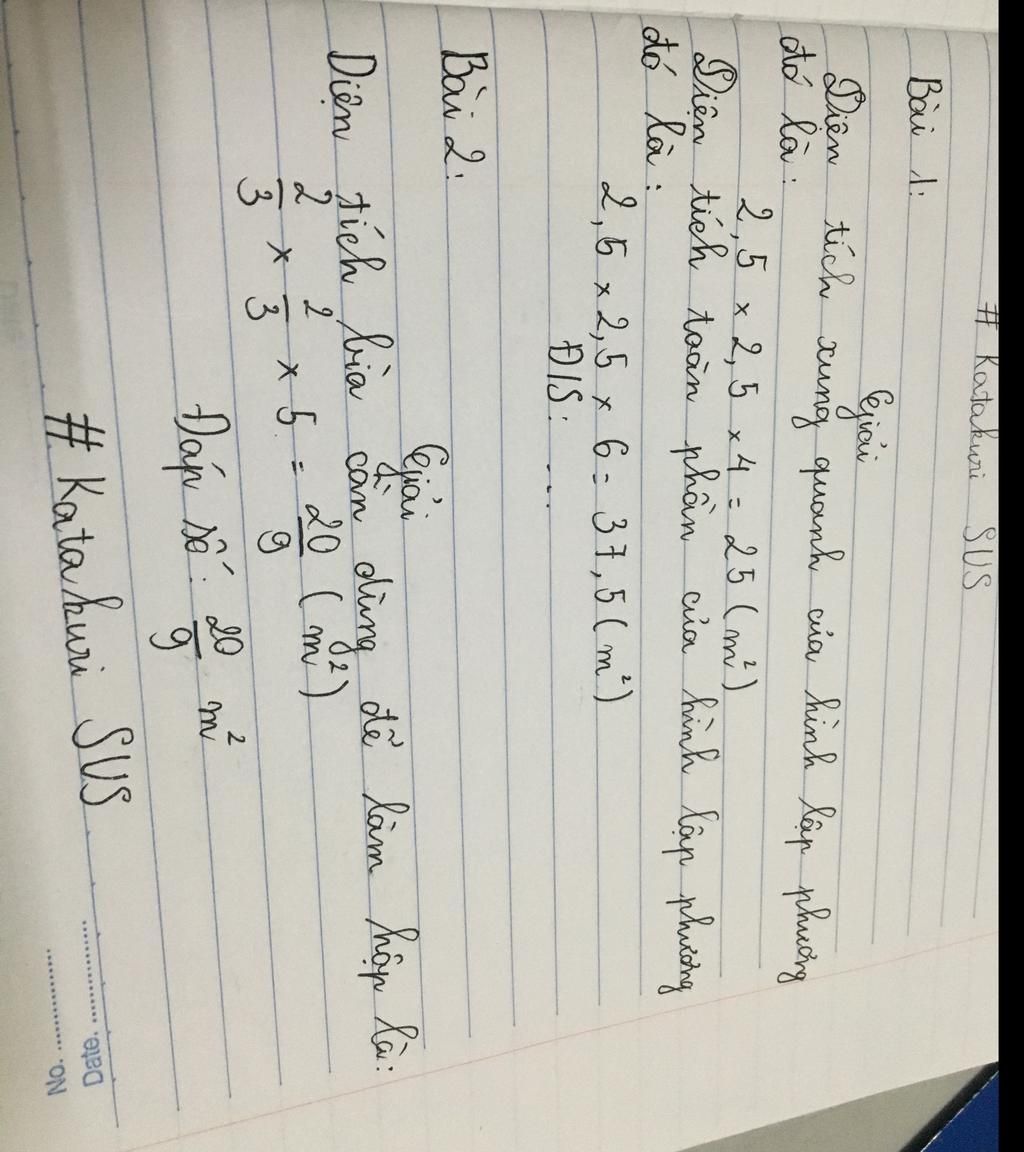 # Katakuri SUS
Bài 1:
Giải
Diện tích xung quanh của hình lập phương
đó là:
2,5 × 2,5 × 4 = 25 (m²)
Diện tích toàn phần của hình lập phương
đó là:
2,5 × 2,5 × 6 = 37,5 (m²)
Đ/S: ....
Bài 2:
Giải
Diện tích bìa cần dùng để làm hộp là:
2/3 × 2/3 × 5 = 20/9 (m²)
Đáp số: 20/9 m²
# Katakuri SUS
No. ....................
Date. ....................